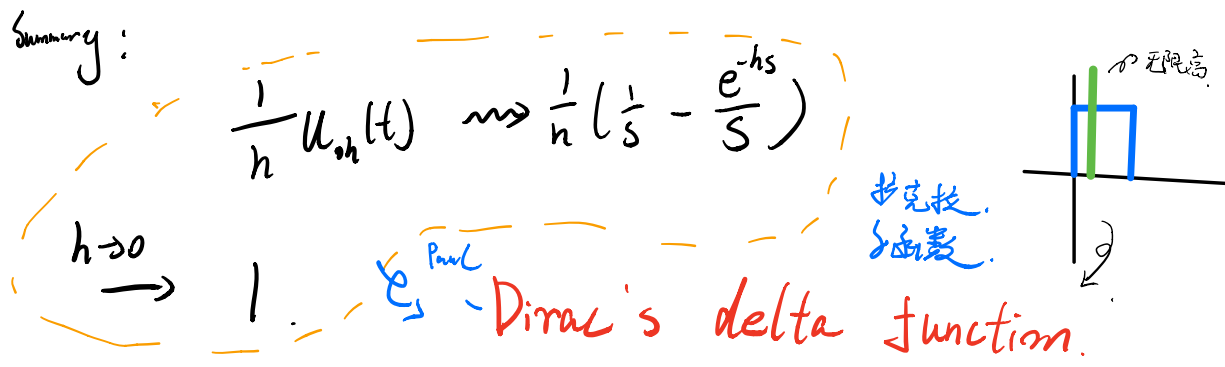 Summary:
1/h u₀ₕ(t) ⇝ 1/h (1/s - e^{-hs}/s)
无限高
h→0 → 1.
狄克拉.
δ函数.
Paul
Dirac's delta function.